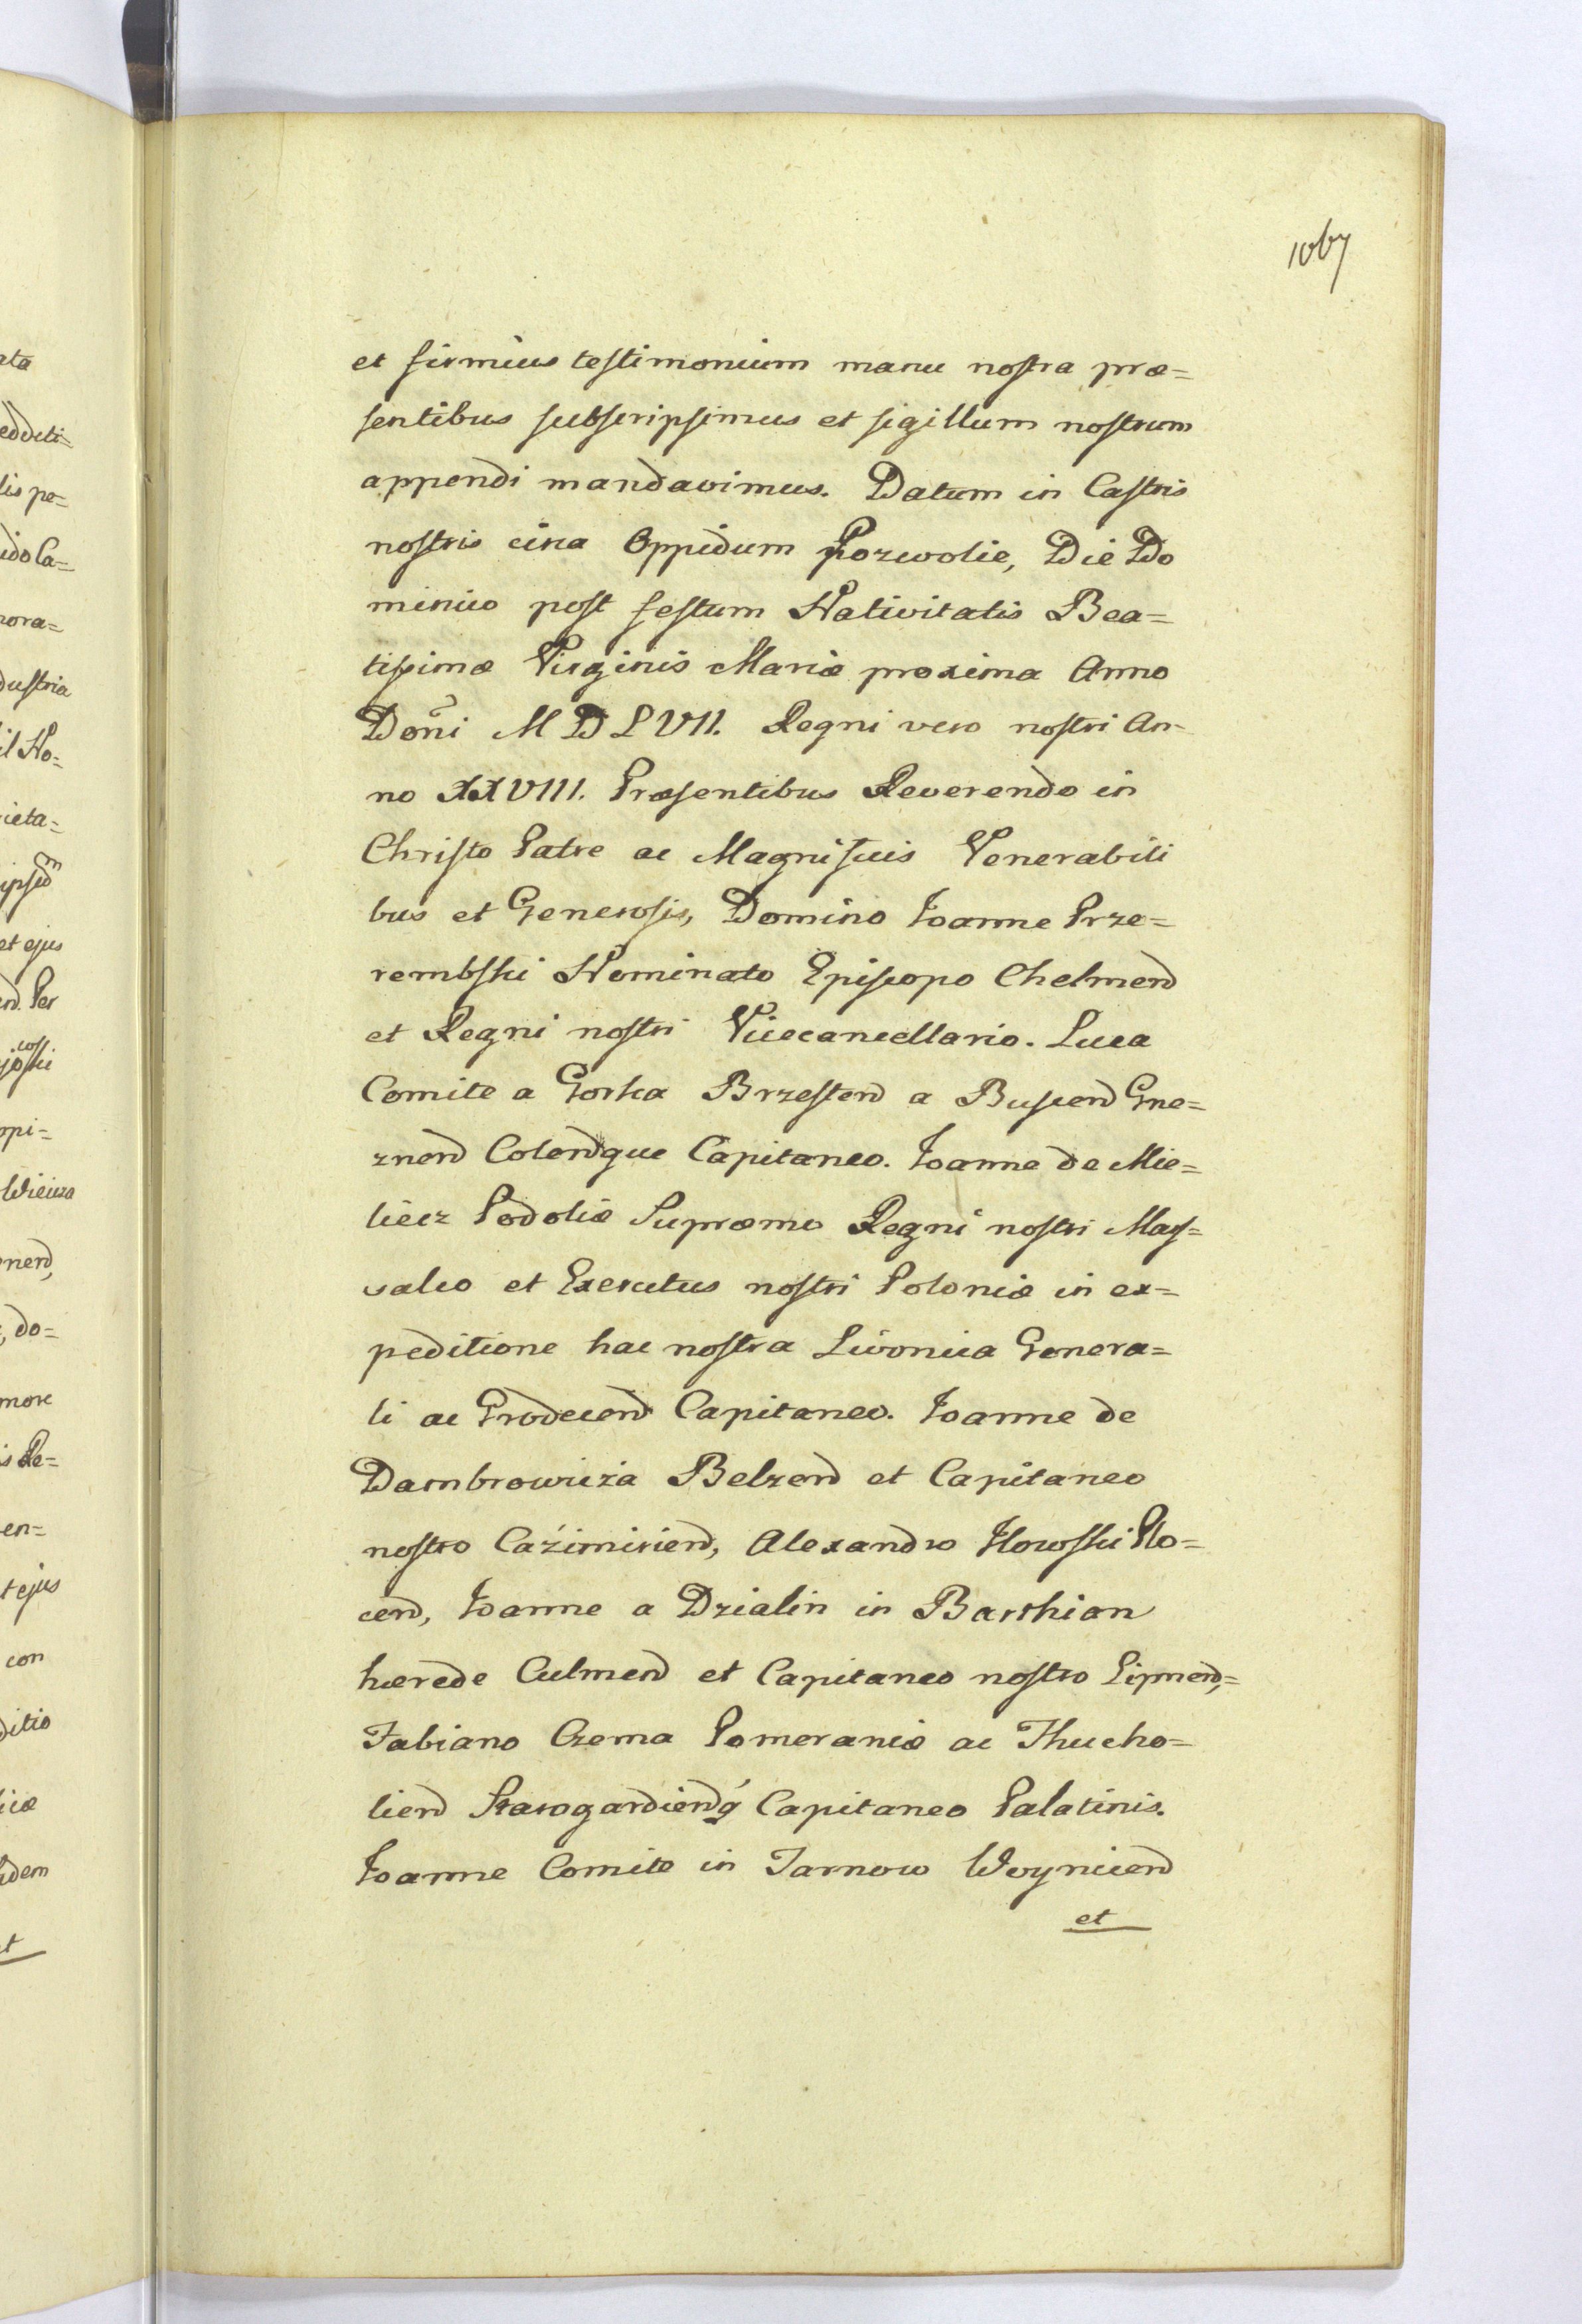 1067
et firmius testimonium manu nostra præ=
sentibus subscripsimus et sigillum nostrum
appendi mandavimus. Datum in Castris
nostris circa Oppidum Pozwolie, Die Do
minico post festum Nativitatis Bea=
tissimæ Virginis Mariæ proxima Anno
Doñi MDLVII. Regni vero nostri An-
no XXVIII. Præsentibus Reverendo in
Christo Patre ac Magnificis Venerabili
bus et Generosis, Domino Joanne Prze=
rembski Nominato Episcopo Chelmen̄
et Regni nostri Vicecancellario. Luca
Comite a Gorka Brzesten̄ a Buscen̄ Gne=
znen̄ Colen̄que Capitaneo. Joanne de Mie=
liecz Podoliæ Supræmo Regni nostri Mar=
salco et Exercitus nostri Poloniæ in ex=
peditione hac nostra Livonica Genera=
li ac Grodecen̄ Capitaneo. Joanne de
Dambrowicza Belzen̄ et Capitaneo
nostro Cazimirien̄, Alexandro Ilowski Plo=
cen̄, Joanne a Dzialin in Barthian
hærede Culmen̄ et Capitaneo nostro Lipnen̄,=
Fabiano Czema Pomeraniæ ac Thucho=
lien̄ Starogardien̄q́ Capitaneo Palatinis.
Joanne Comite in Tarnow Woynicen̄
et